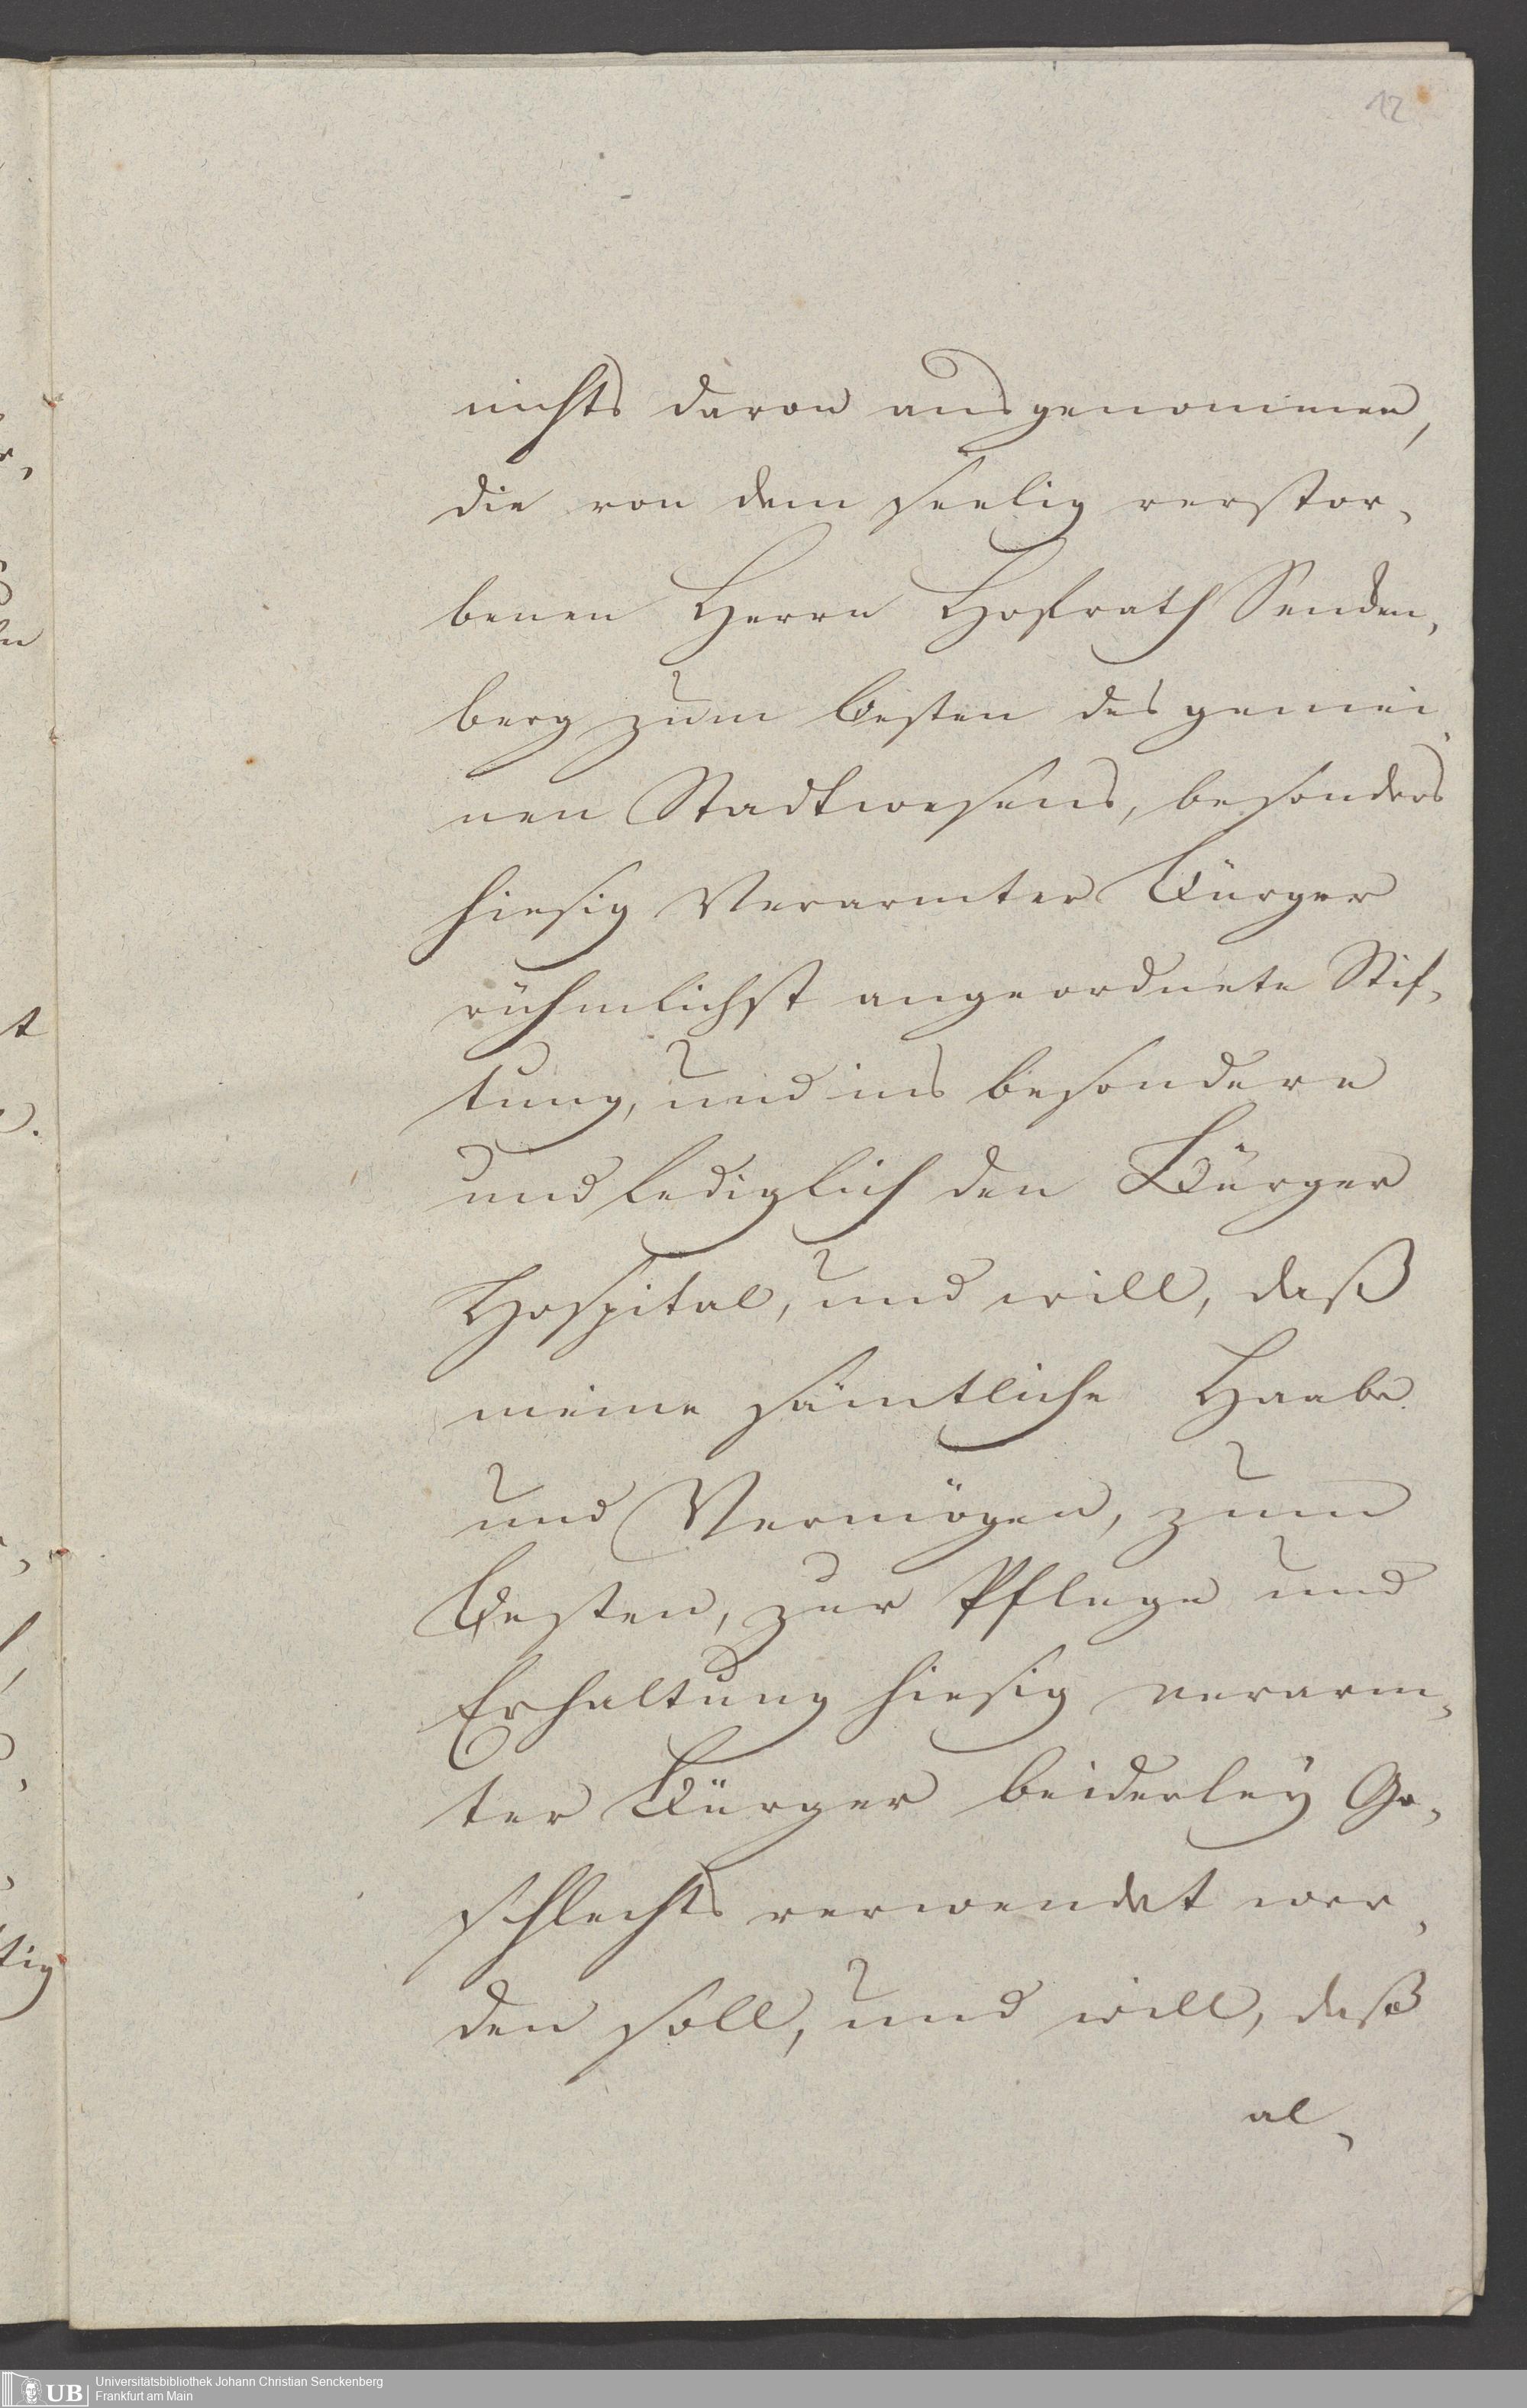 12
nichts davon ausgenommen,
die von dem seelig verstor,
benen Herrn Hofrath Senden,
berg zum besten des gemei,
nen Stadtwesens, besonders
hiesig Verarmter Bürger
rühmlichst angeordnete Stif,
tung, und ins besondere
und lediglich den Bürger
Hospital, und will, daß
meine sämtliche Haabe
und Vermögen, zum
besten, zur Pflege und
Erhaltung hiesig verarm,
ter Bürger beiderley Ge,
schlechts verwendet wer,
den soll, und will, daß
al,
UB
Universitätsbibliothek Johann Christian Senckenberg
Frankfurt am Main